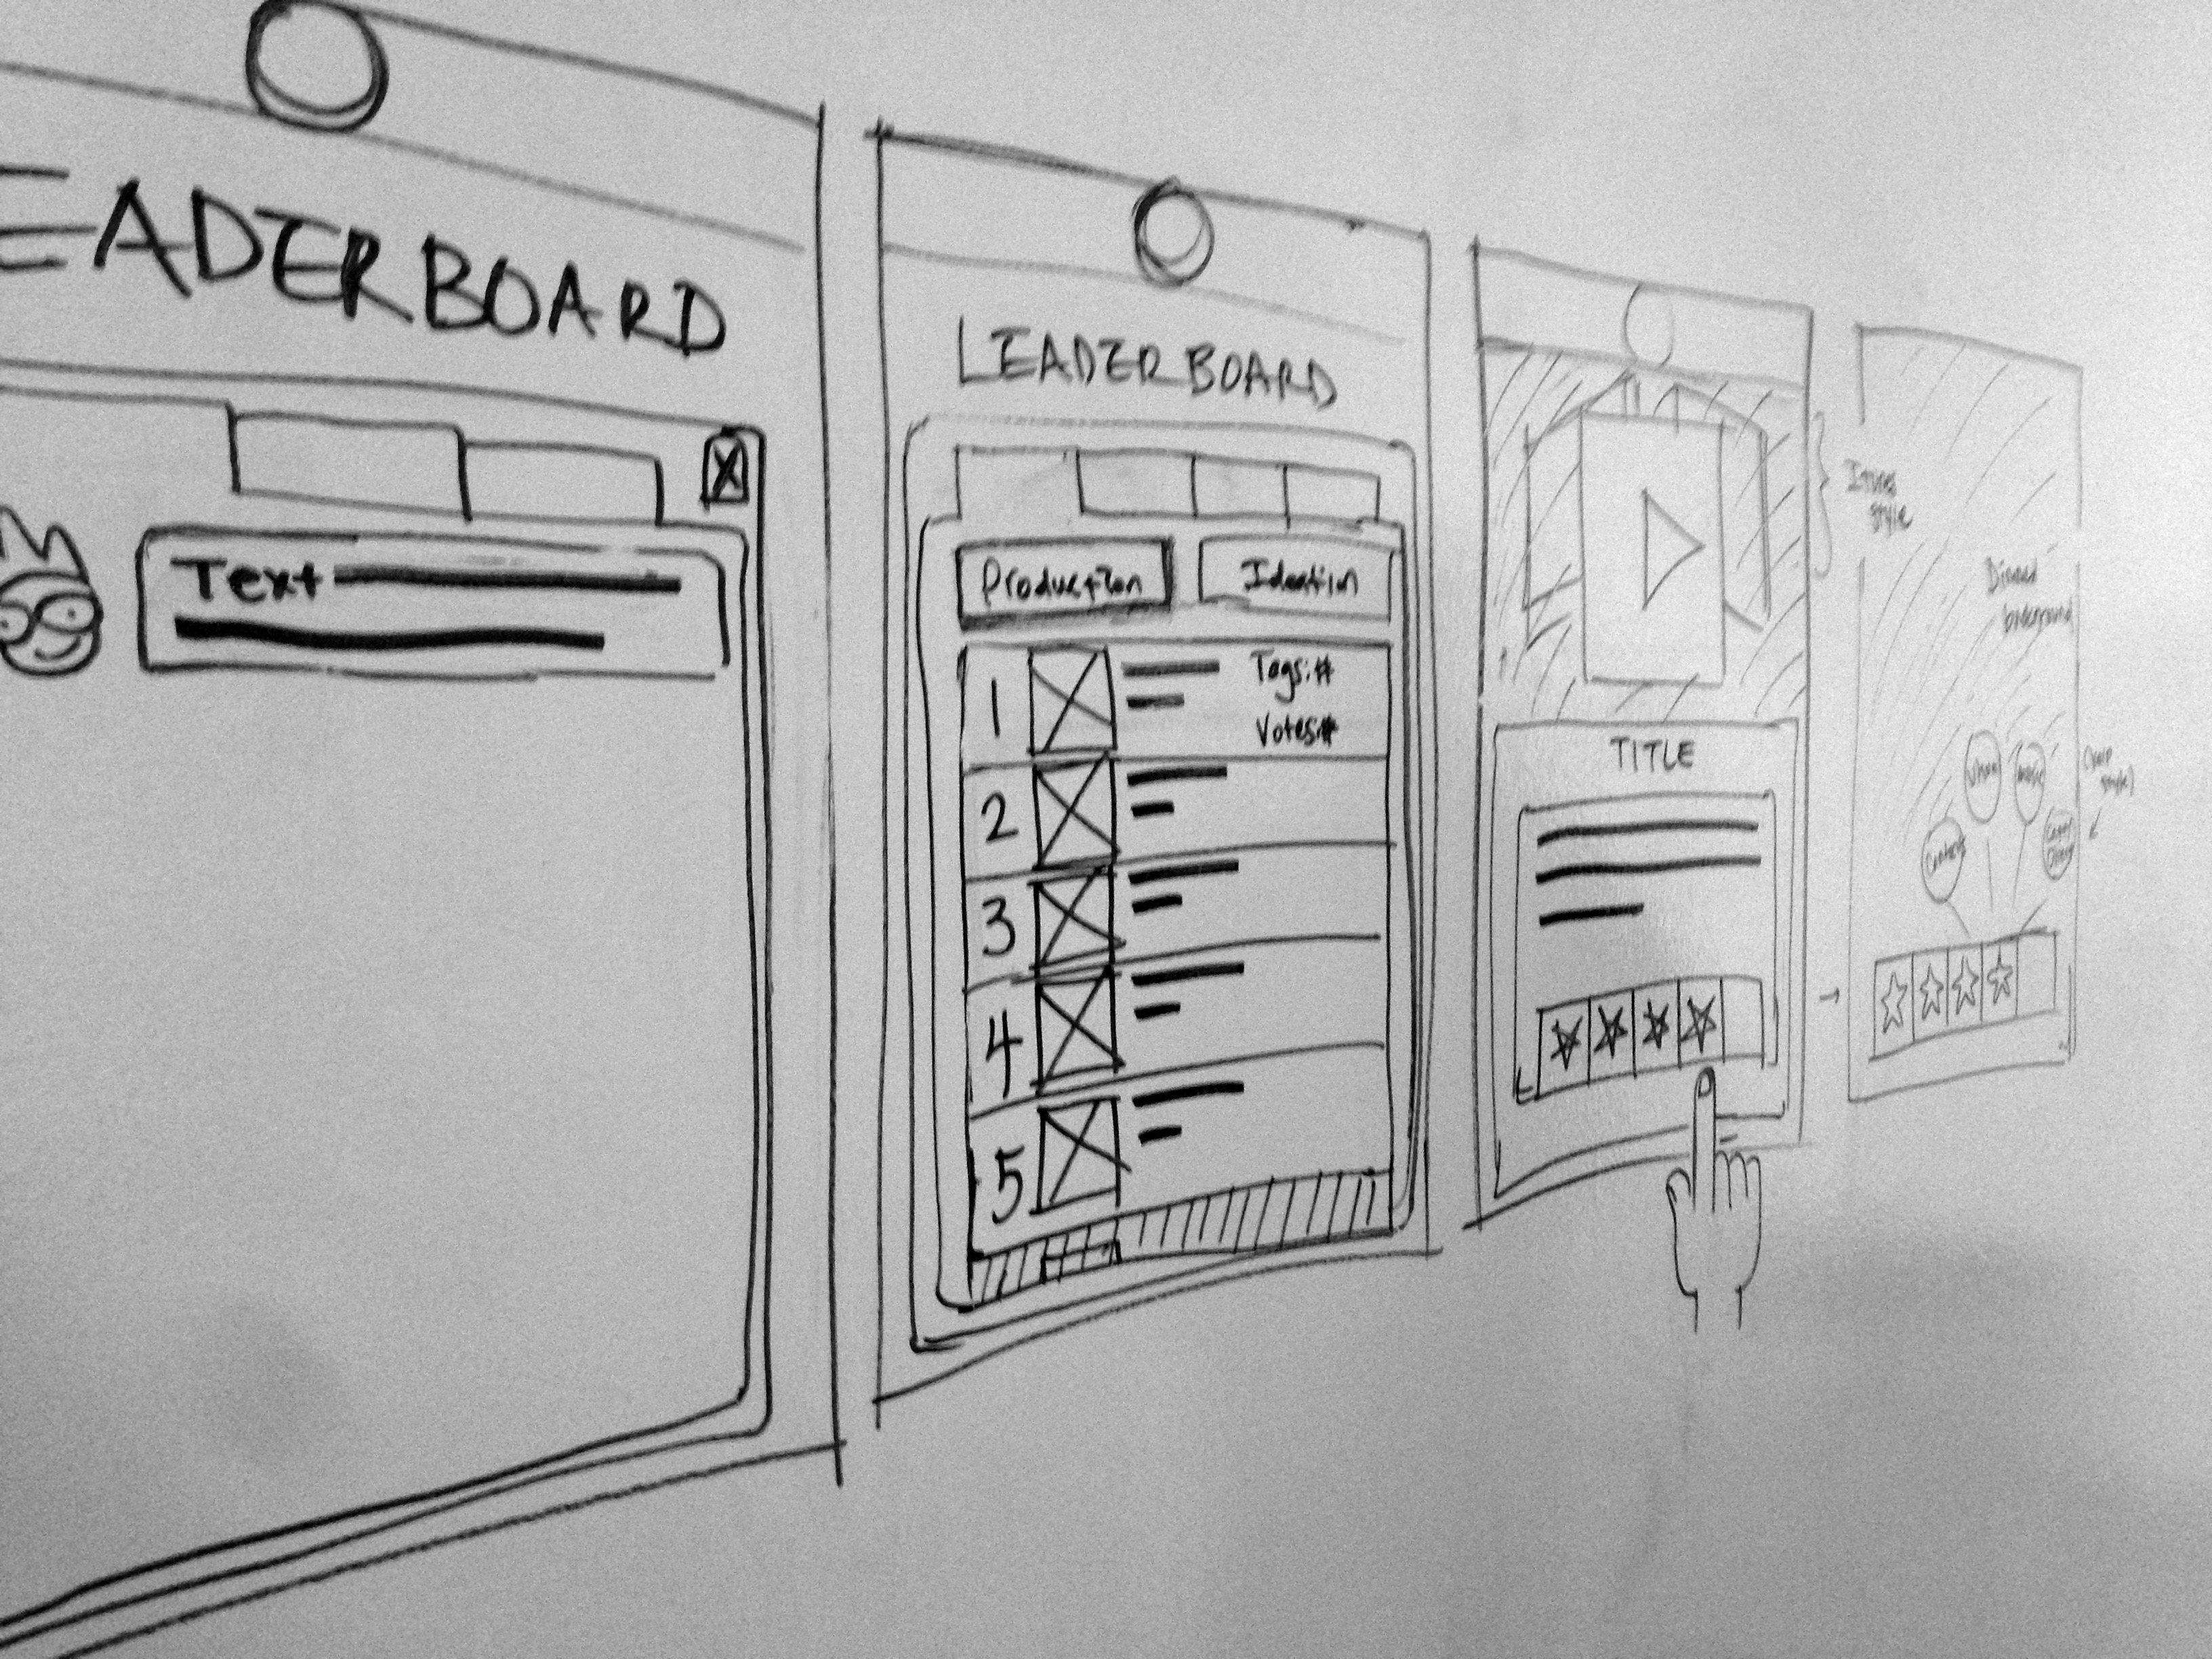 EADERBOARD
Text
LEADERBOARD
Production
Ideation
1
Tags:#
Votes:#
2
3
4
5
TITLE
Itunes
style
Dimmed
Visual
Music
style)